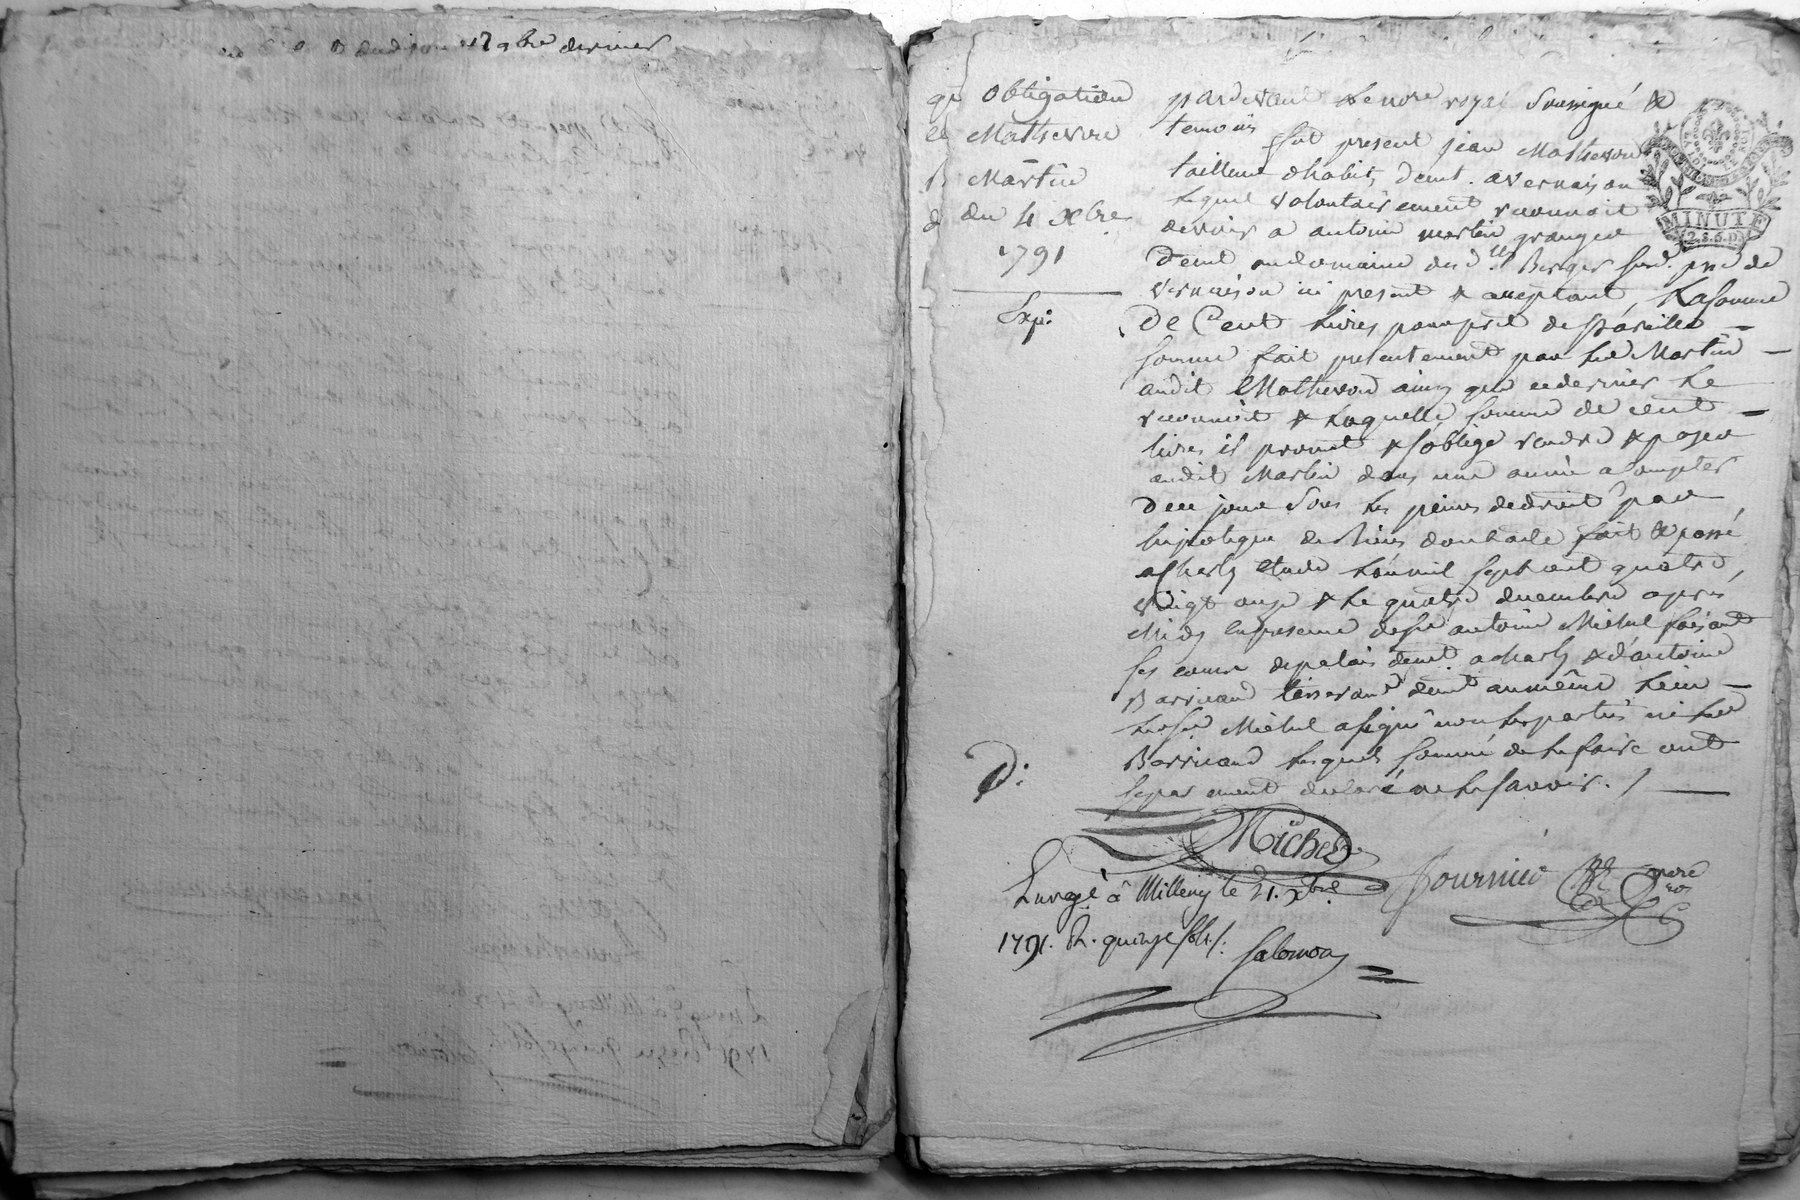 dudit jour 27 9bre dernier
obligation
Mathevon
Martin
du 4 Xbre
1791
Exp:
pardevant Le nore royal soussigné &
temoins
fut present jean Mathevon
tailleur dhabits demt. a vernaison
Lequel volontairement reconnoit
devoir a antoine martin granger
demt au domaine des dlles Berger sur lad. psse de
vernaison ici present & acceptant, La somme
De Cent Livres pour pret de pareille
somme fait presentement par led Martin
audit Mathevon ainsy que ce dernier Le
reconnoit & Laquelle somme de cent
livres il promet & s'oblige rendre & payer
audit Martin dans une année a compter
De ce jour Sous Les peines de droit par
hipoteque de biens dont acte fait & passé
a Charly etude L'an mil sept cent quatre
vingt onze & Le quatre decembre apres
Midy en presence de sr antoine Michel faisant
ses cours de palais demt. a charly & d'antoine
Barricand tisserand demt au même Lieu
Led sr. Michel a signé non Les parties ni Led
Barricand Lesquels sommé de Le faire ont
separement declaré ne Le savoir. /
D:
Michel
Fournier nore
MINUTE
2.S.6.D.
Enregé à Millery le 21. Xbre
1791. R. quinze sols /.
Salomon